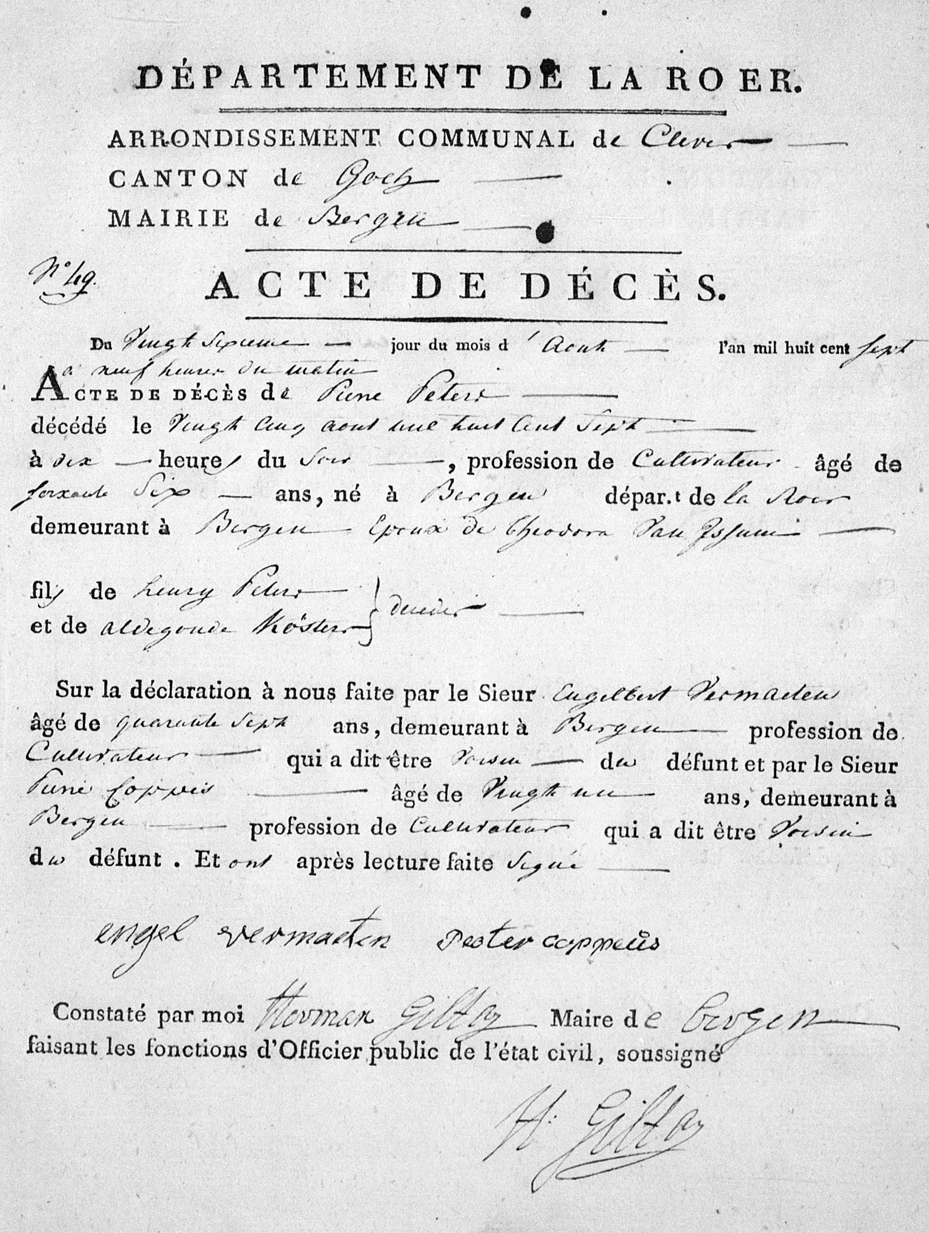 DÉPARTEMENT DE LA ROER.
ARRONDISSEMENT COMMUNAL de Cleves
CANTON de Goch
MAIRIE de Bergen
N.º 49.
ACTE DE DÉCÈS.
Du Vingt Sixieme jour du mois d'Aout l'an mil huit cent sept
a neuf heures du matin
ACTE DE DÉCÈS de Pierre Peters
décédé le Vingt Cinq aout mil huit Cent Sept
à dix heures du Soir, profession de Cultivateur âgé de
soixante Six ans, né à Bergen dépar.t de la Roer
demeurant à Bergen Epoux de Theodora Van Issum
fils de henry Peters
et de aldegonde Kösters } decedés
Sur la déclaration à nous faite par le Sieur Engelbert Vermaeten
âgé de quarante Sept ans, demeurant à Bergen profession de
Cultivateur qui a dit être Voisin du défunt et par le Sieur
Pierre Coppes âgé de Vingt un ans, demeurant à
Bergen profession de Cultivateur qui a dit être Voisin
du défunt. Et ont après lecture faite Signé
engel vermaeten Peeter coppens
Constaté par moi Herman Giltay Maire de bergen
faisant les fonctions d'Officier public de l'état civil, soussigné
H. Giltay